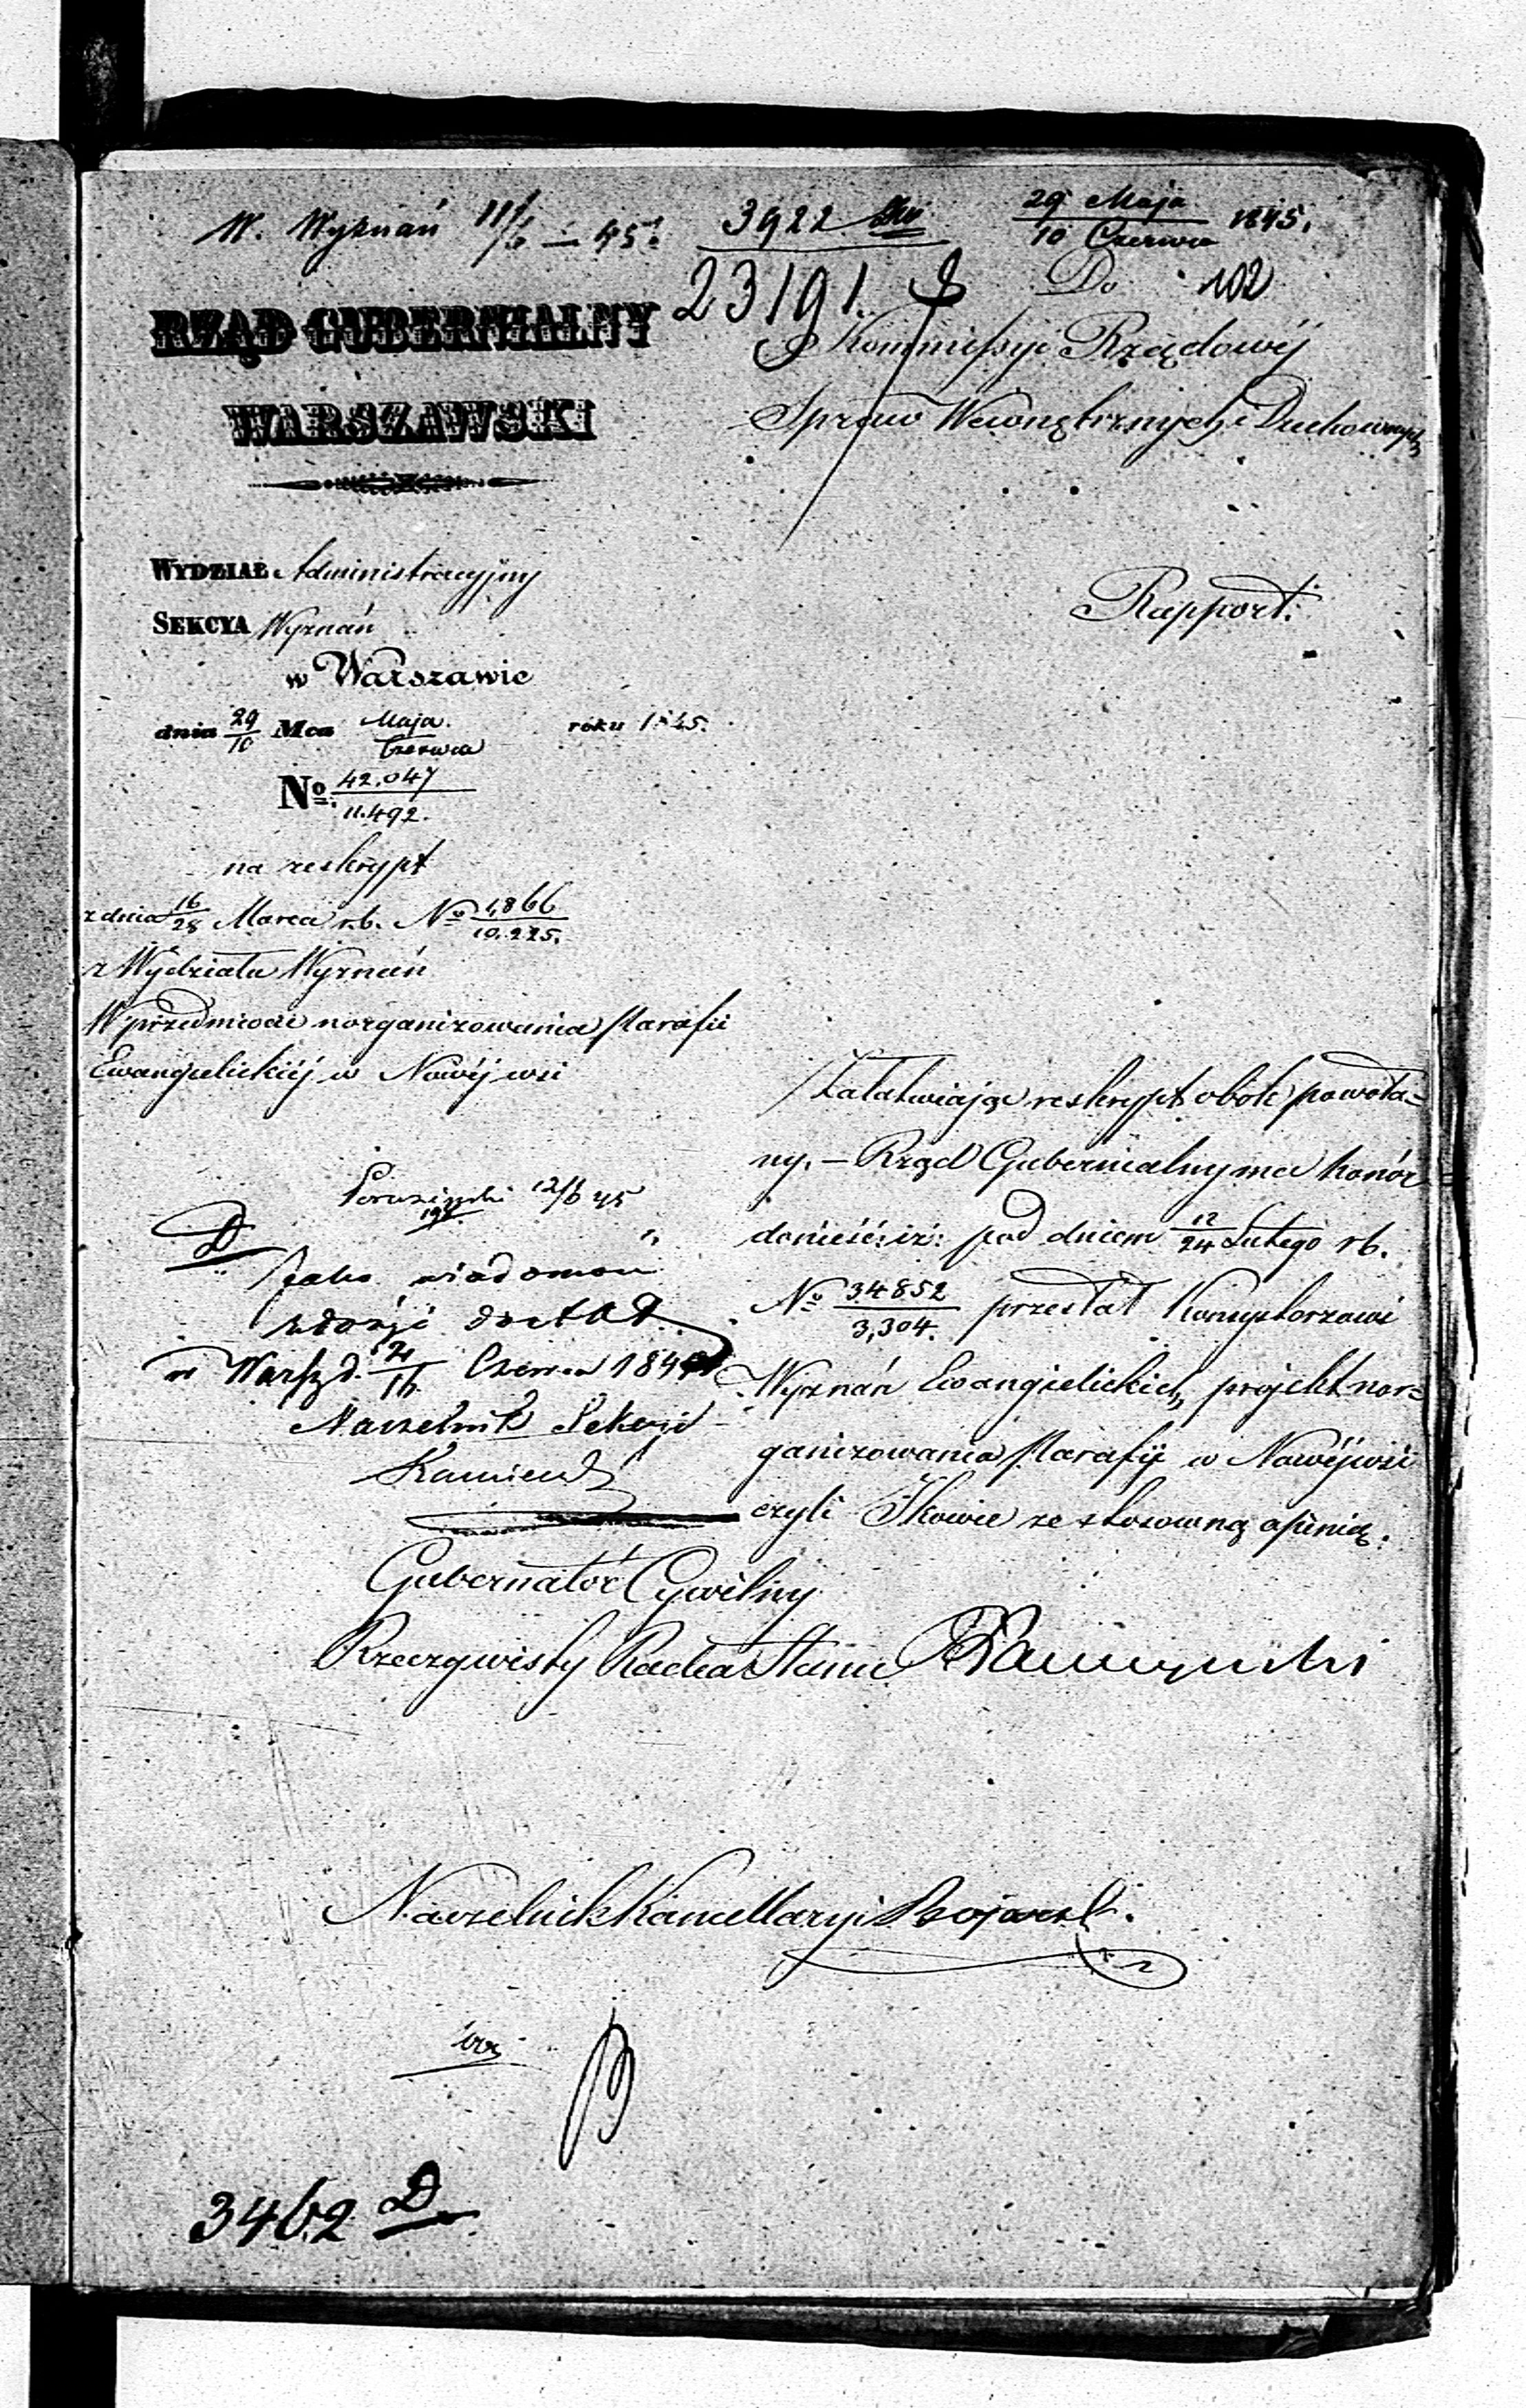 W. Wyznań 11/6 – 45.
3922
29 Maja
10 Czerwca 1845.
23191.
Do 102
RZĄD GUBERNIALNY
WARSZAWSKI
Kommissyi Rządowéj
Spraw Wewnętrznych i Duchownych
WYDZIAŁ Administracyjny
SEKCYA Wyznań
Rapport.
w Warszawie
dnia 29/10 Mca Maja/Czerwca roku 1845.
No. 42.047/11.492.
na reskrypt
z dnia 16/28 Marca r.b. No 4,866/10.225.
z Wydziału Wyznań
W przedmiocie uorganizowania Parafii
Ewangielickiéj w Nowéj wsi
Załatwiając reskrypt obok powoła-
ny. – Rząd Gubernialny ma honór
donieść: iż: pod dniem 12/24 Lutego r.b.
No 34852/3,304. przesłał Konsystorzowi
Wyznań Ewangielickich, projekt uor-
ganizowania Parafij w Nowéjwsi
czyli Ikowie ze stosowną opinią.
12/6 45
D
Jako wiadomość
złożyć do akt
w Warsz. d. 4/16 Czerwca 1845
Naczelnik Sekcyi
Gubernator Cywilny
Rzeczywisty Radca Stanu
Naczelnik Kancellaryi
3462 D